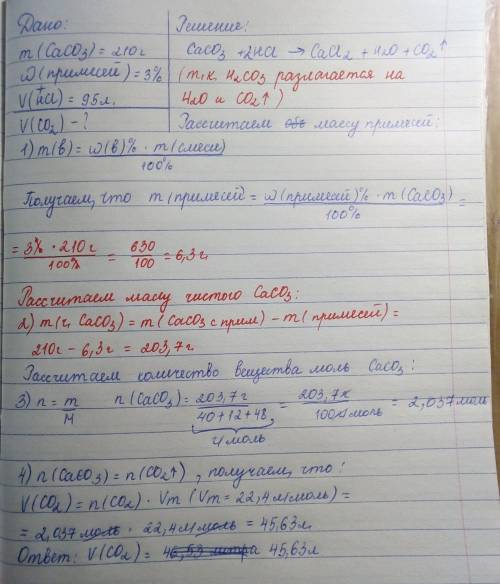 Дано:
Решение:
m(CaCO₃) = 210г
CaCO₃ + 2HCl → CaCl₂ + H₂O + CO₂↑
ω(примесей) = 3%
(т.к. H₂CO₃ разлагается на
V(HCl) = 95л.
H₂O и CO₂↑)
V(CO₂) - ?
Рассчитаем массу примесей:
1) m(в) = ω(в)% · m(смеси)
100%
Получаем, что m(примесей) = ω(примесей)% · m(CaCO₃) =
100%
= 3% · 210г = 630 = 6,3г.
100% 100
Рассчитаем массу чистого CaCO₃:
2) m(ч. CaCO₃) = m(CaCO₃ с прим) - m(примесей) =
210г - 6,3г = 203,7г.
Рассчитаем количество вещества моль CaCO₃:
3) n = m n(CaCO₃) = 203,7г = 203,7г = 2,037мол
M 40+12+48 100г/моль
г/моль
4) n(CaCO₃) = n(CO₂↑), получаем, что:
V(CO₂) = n(CO₂) · Vm (Vm = 22,4л/моль) =
= 2,037моль · 22,4л/моль = 45,63л.
Ответ: V(CO₂) = 46,53 литра 45,63л